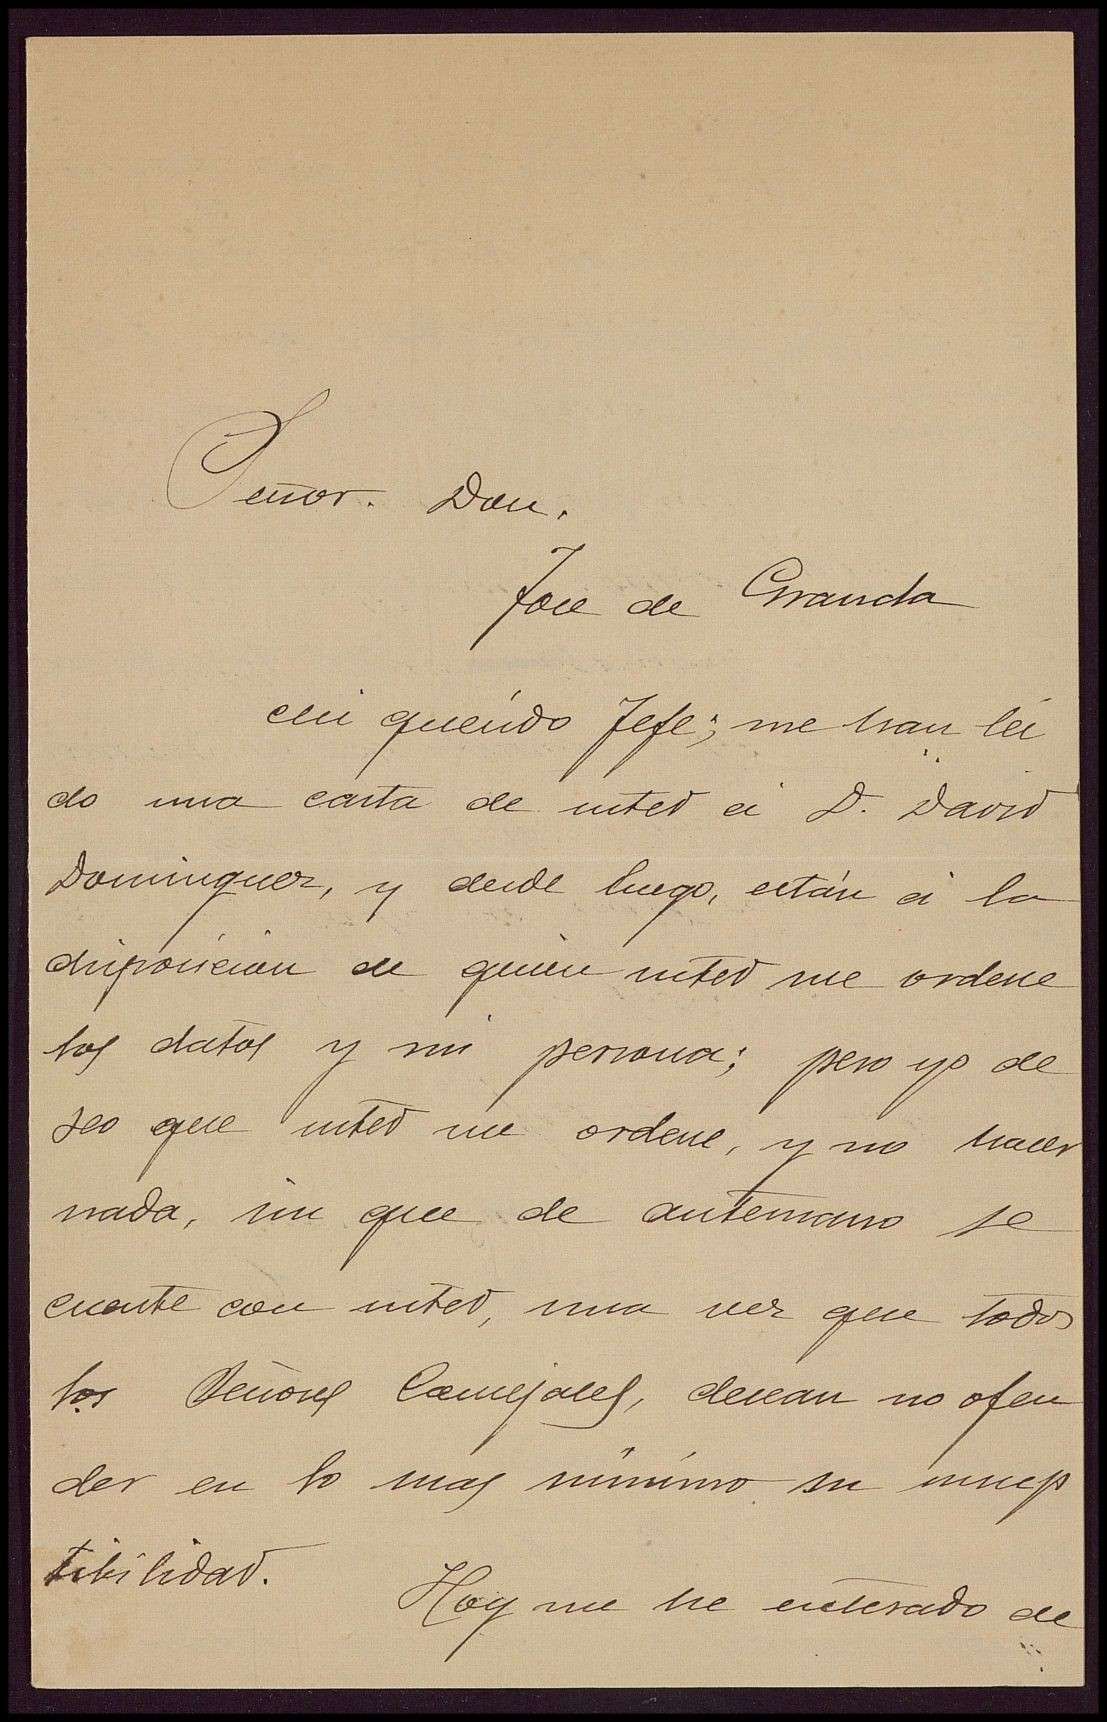 Señor. Don.
Jose de Granda
Mi querido Jefe; me han lei
do una carta de usted á D. David
Dominguez, y desde luego, están á la
disposición de quien usted me ordene
los datos y mi persona; pero yo de
seo que usted me ordene, y no hacer
nada, sin que de antemano se
cuente con usted, una vez que todos
los Señores Concejales, desean no ofen
der en lo mas mínimo su susep
tibilidad.
Hoy me he enterado de